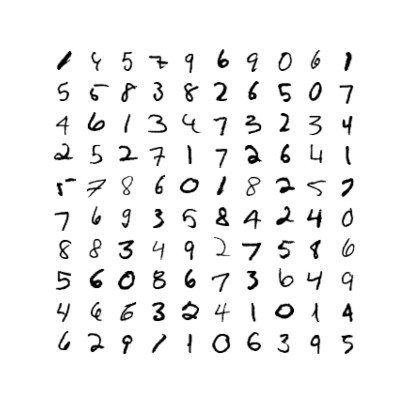 1 4 5 7 9 6 9 0 6 1
5 5 8 3 8 2 6 5 0 7
4 6 1 3 4 7 3 2 3 4
2 5 2 7 1 7 2 6 4 1
5 7 8 6 0 1 8 2 5 7
7 6 9 3 5 8 4 2 4 0
8 8 3 4 9 2 7 5 8 6
5 6 0 8 6 7 3 6 4 9
4 6 6 3 2 4 1 0 1 4
6 2 9 1 1 0 6 3 9 5